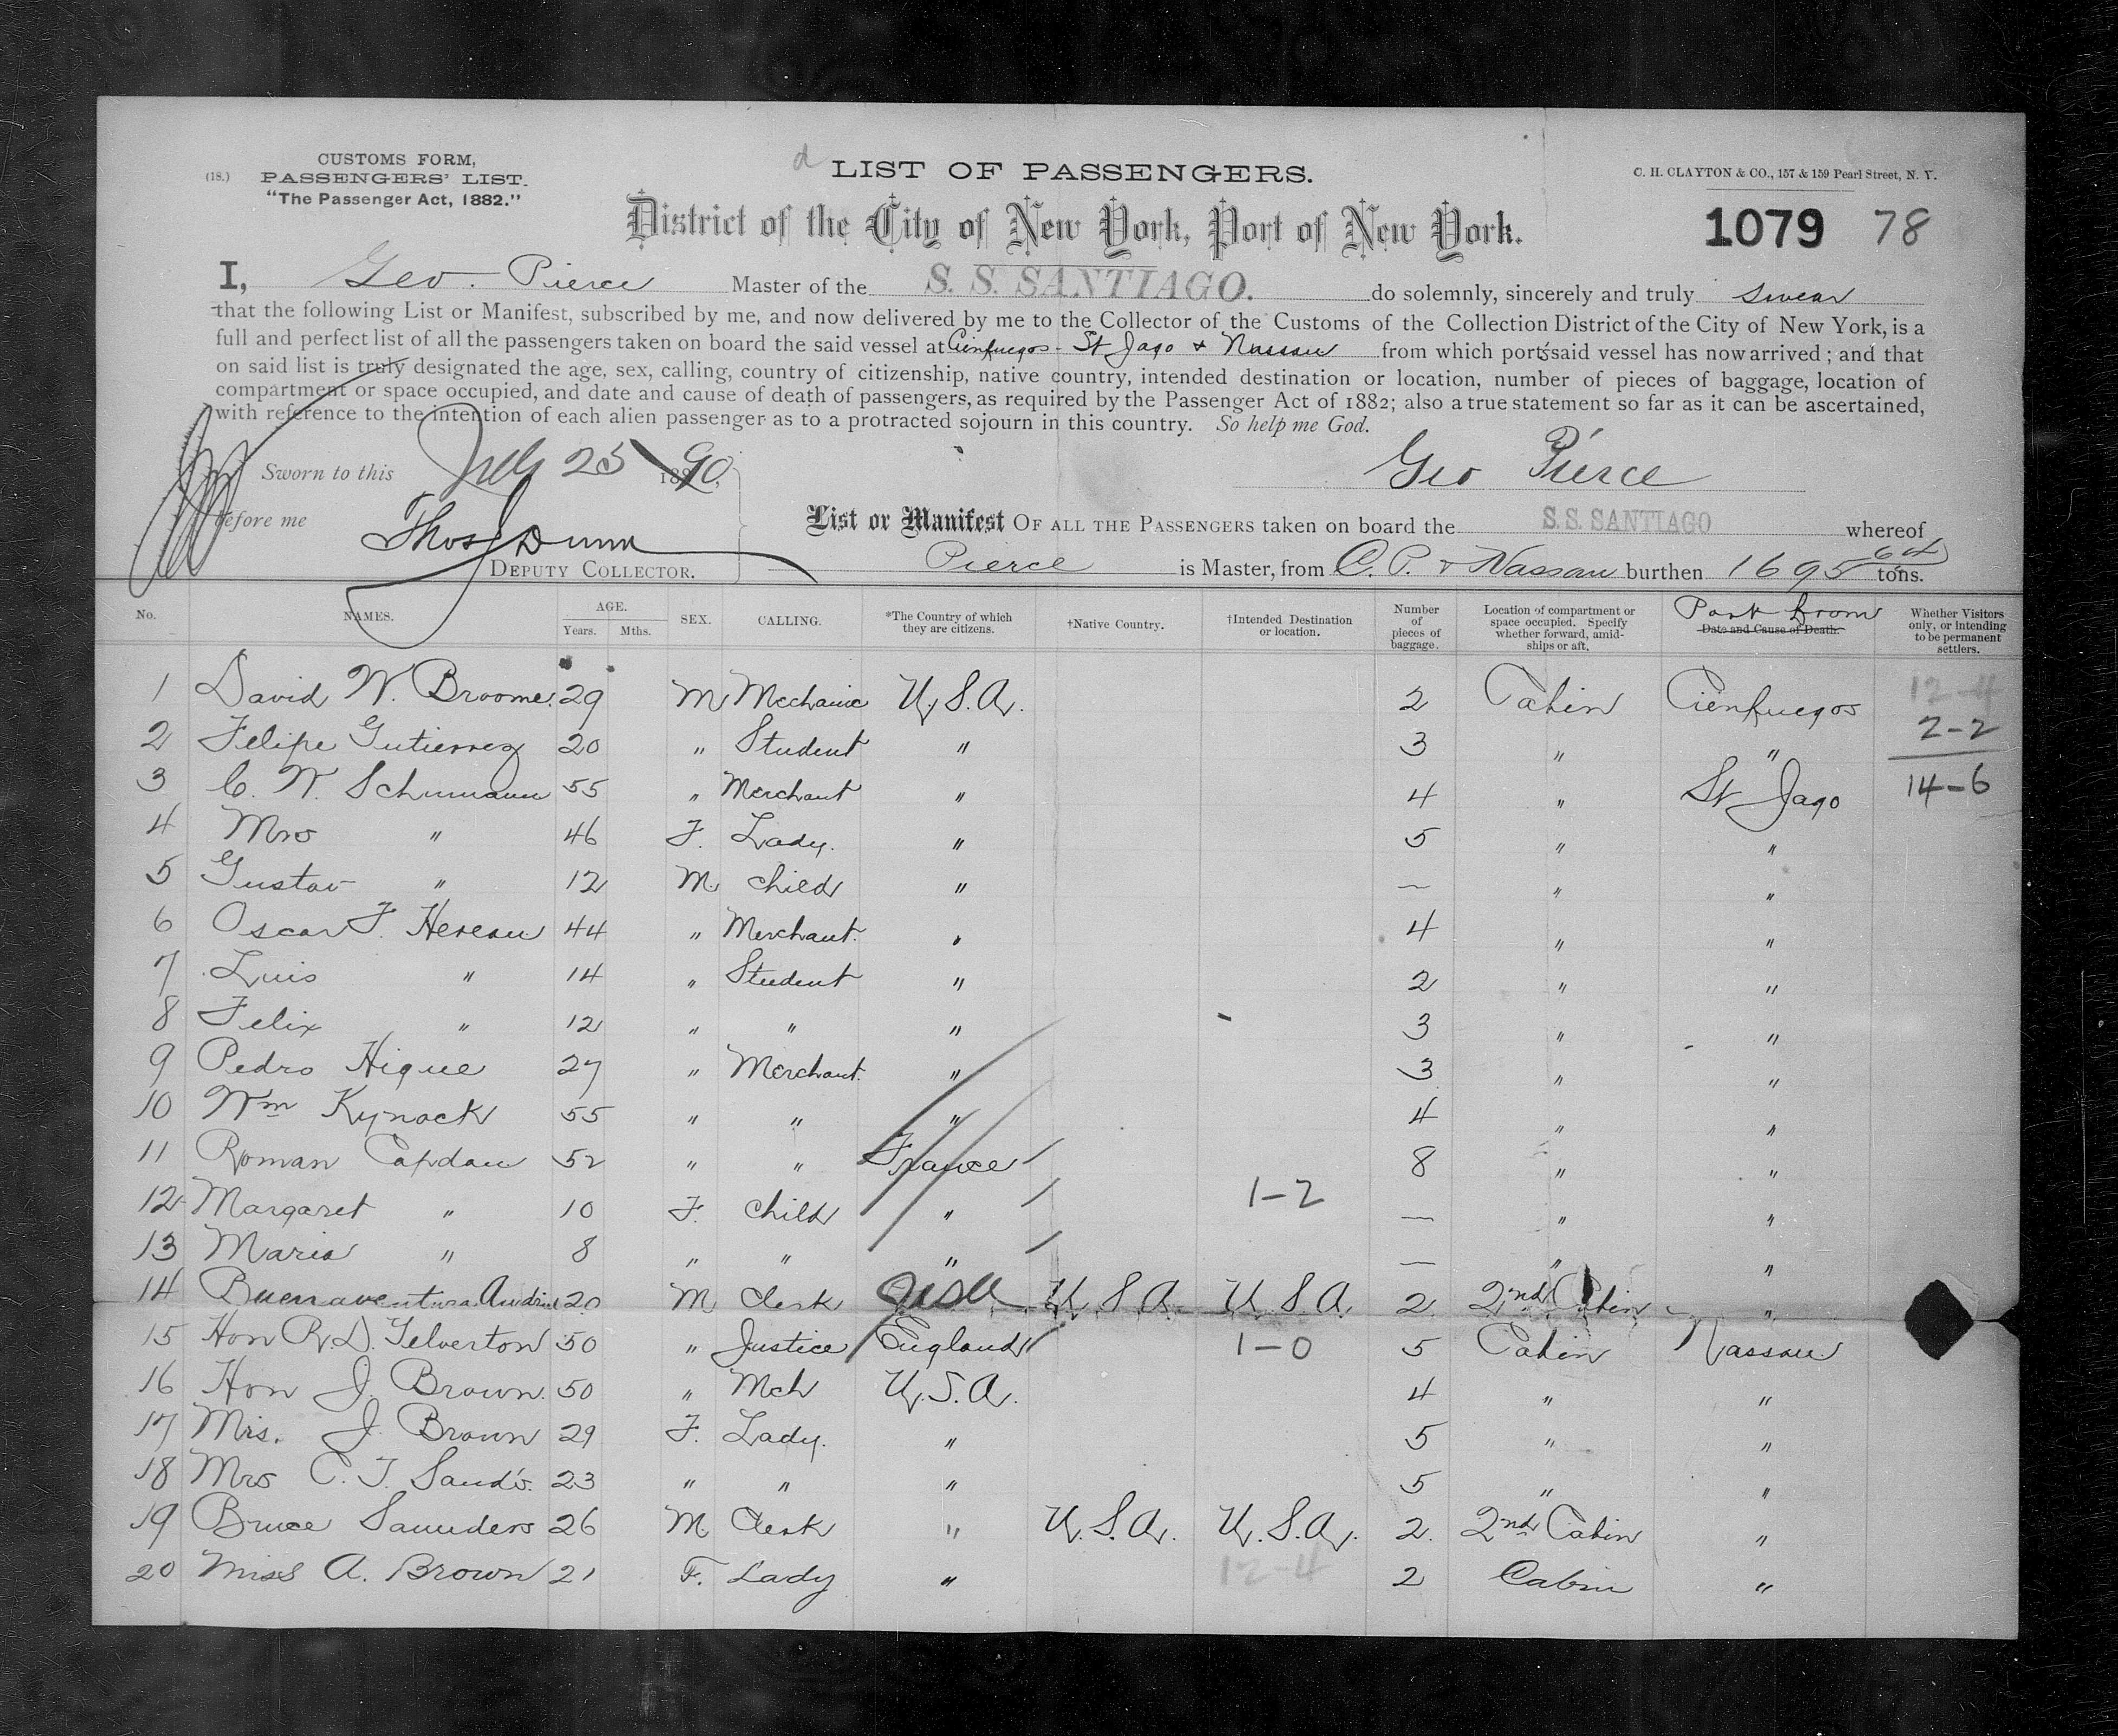 CUSTOMS FORM,
(18.) PASSENGERS' LIST.
"The Passenger Act, 1882."
d LIST OF PASSENGERS.
C. H. CLAYTON & CO., 157 & 159 Pearl Street, N. Y.
District of the City of New York, Port of New York.
1079 78
I, Geo. Pierce Master of the S. S. SANTIAGO. do solemnly, sincerely and truly swear
that the following List or Manifest, subscribed by me, and now delivered by me to the Collector of the Customs of the Collection District of the City of New York, is a
full and perfect list of all the passengers taken on board the said vessel at Cienfuegos - St Jago & Nassau from which ports said vessel has now arrived; and that
on said list is truly designated the age, sex, calling, country of citizenship, native country, intended destination or location, number of pieces of baggage, location of
compartment or space occupied, and date and cause of death of passengers, as required by the Passenger Act of 1882; also a true statement so far as it can be ascertained,
with reference to the intention of each alien passenger as to a protracted sojourn in this country. So help me God.
Sworn to this July 25 1890,
Geo Pierce
before me Thos J Dunn
DEPUTY COLLECTOR.
List or Manifest OF ALL THE PASSENGERS taken on board the S.S. SANTIAGO whereof
Pierce is Master, from C. P. & Nassau burthen 1695 64 tons.
No. NAMES. AGE. Years. Mths. SEX. CALLING. *The Country of which they are citizens. †Native Country. †Intended Destination or location. Number of pieces of baggage. Location of compartment or space occupied. Specify whether forward, amidships or aft. Port from Date and Cause of Death. Whether Visitors only, or intending to be permanent settlers.
1 David W. Broome. 29 M Mechanic U.S.A. 2 Cabin Cienfuegos 12-4
2 Felipe Gutierrez 20 " Student " 3 " " 2-2
3 C. W. Schumann 55 " Merchant " 4 " St Jago 14-6
4 Mrs " 46 F. Lady. " 5 " "
5 Gustav " 12 M. Child " — " "
6 Oscar F. 44 " Merchant. " 4 " "
7 Luis " 14 " Student " 2 " "
8 Felix " 12 " " " 3 " "
9 Pedro Hique 27 " Merchant. " 3 " "
10 Wm Kynock 55 " " " 4 " "
11 Roman Capdau 52 " " France 8 " "
12 Margaret " 10 F. Child " 1-2 — " "
13 Maria " 8 " " " — " "
14 Buenaventura 20 M Clerk U S A U S A. 2 2nd Cabin "
15 Hon R.D. Yelverton 50 " Justice England 1-0 5 Cabin Nassau
16 Hon J. Brown. 50 " Mch U.S.A. 4 " "
17 Mrs. J. Brown 29 F. Lady. " 5 " "
18 Mrs C. T. Saud's. 23 " " " 5 " "
19 Bruce Saunders 26 M Clerk " U.S.A. U.S.A. 2. 2nd Cabin "
20 Miss A. Brown 21 F. Lady " 12-4 2 Cabin "